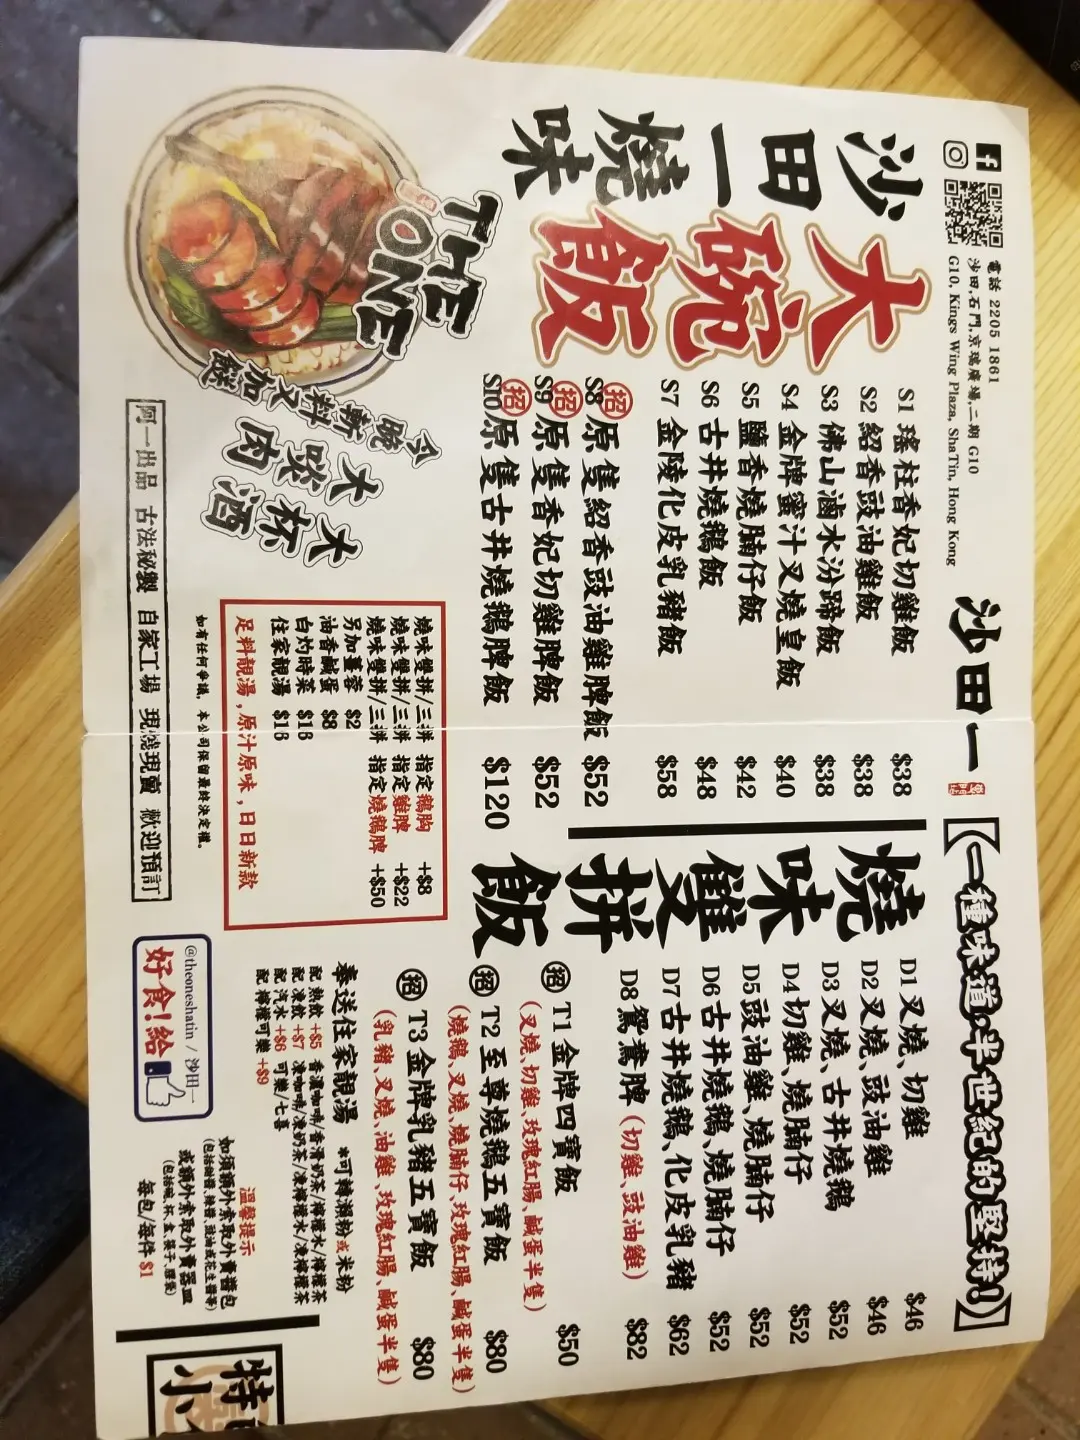 電話 2205 1861
沙田,石門,京瑞廣場,二期 G10
G10, Kings Wing Plaza, Sha Tin, Hong Kong
沙田一
【一種味道c半世紀的堅持!】
沙田一燒味
大碗飯
S1 瑤柱香妃切雞飯 $38
S2 紹香豉油雞飯 $38
S3 佛山滷水汾蹄飯 $38
S4 金牌蜜汁叉燒皇飯 $40
S5 鹽香燒腩仔飯 $42
S6 古井燒鵝飯 $48
S7 金陵化皮乳豬飯 $58
招 S8 原隻紹香豉油雞脾飯 $52
招 S9 原隻香妃切雞脾飯 $52
招 S10 原隻古井燒鵝脾飯 $120
燒味雙拼飯
D1 叉燒、切雞 $46
D2 叉燒、豉油雞 $46
D3 叉燒、古井燒鵝 $52
D4 切雞、燒腩仔 $52
D5 豉油雞、燒腩仔 $52
D6 古井燒鵝、燒腩仔 $52
D7 古井燒鵝、化皮乳豬 $62
D8 鴛鴦脾 (切雞、豉油雞) $82
招 T1 金牌四寶飯 $50
(叉燒、切雞、玫瑰紅腸、鹹蛋半隻)
招 T2 至尊燒鵝五寶飯 $80
(燒鵝、叉燒、燒腩仔、玫瑰紅腸、鹹蛋半隻)
招 T3 金牌乳豬五寶飯 $80
(乳豬、叉燒、油雞、玫瑰紅腸、鹹蛋半隻)
THE ONE
今晚斬料又加餸
大啖肉
大杯酒
燒味雙拼/三拼 指定鵝胸 +$8
燒味雙拼/三拼 指定雞脾 +$22
燒味雙拼/三拼 指定燒鵝脾 +$50
另加薑蓉 $2
油香鹹蛋 $8
白灼時菜 $18
住家靚湯 $18
足料靚湯,原汁原味,日日新款
如有任何爭議,本公司保留最終決定權。
阿一出品 古法秘製 自家工場 現燒現賣 歡迎預訂
奉送住家靚湯 *可轉瀨粉或米粉
配熱飲 +$5 香濃咖啡/香滑奶茶/檸檬水/檸檬茶
配凍飲 +$7 凍咖啡/凍奶茶/凍檸檬水/凍檸檬茶
配汽水 +$6 可樂/七喜
配檸檬可樂 +$9
@theoneshatin / 沙田一
好食!給
溫馨提示
如須額外索取外賣醬包
或額外索取外賣器皿
每包/每件 $1
特
小